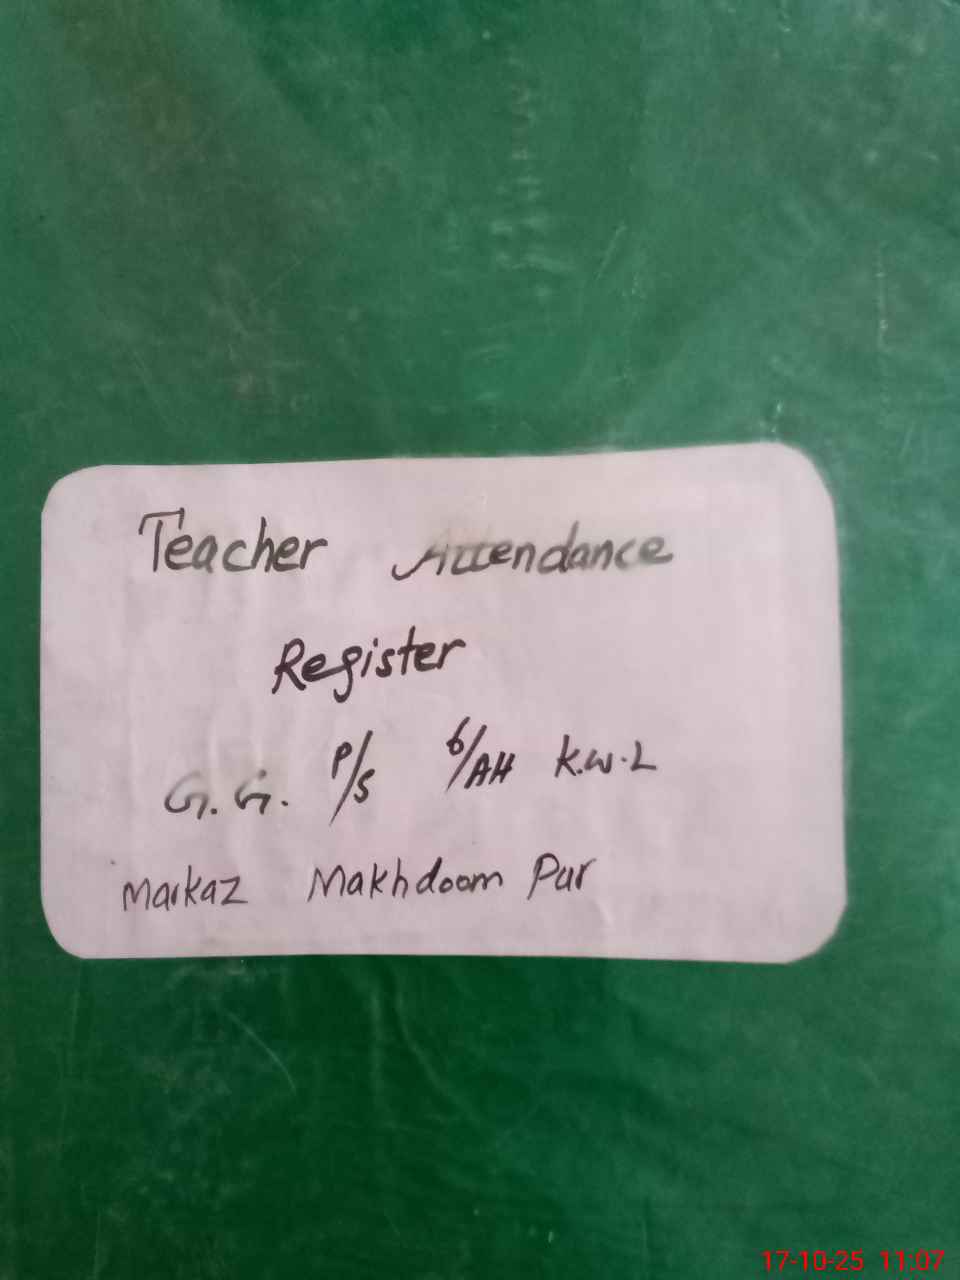 Teacher Attendance
Register
G.G. P/S 6/AH K.W.L
Markaz Makhdoom Pur
17-10-25 11:07